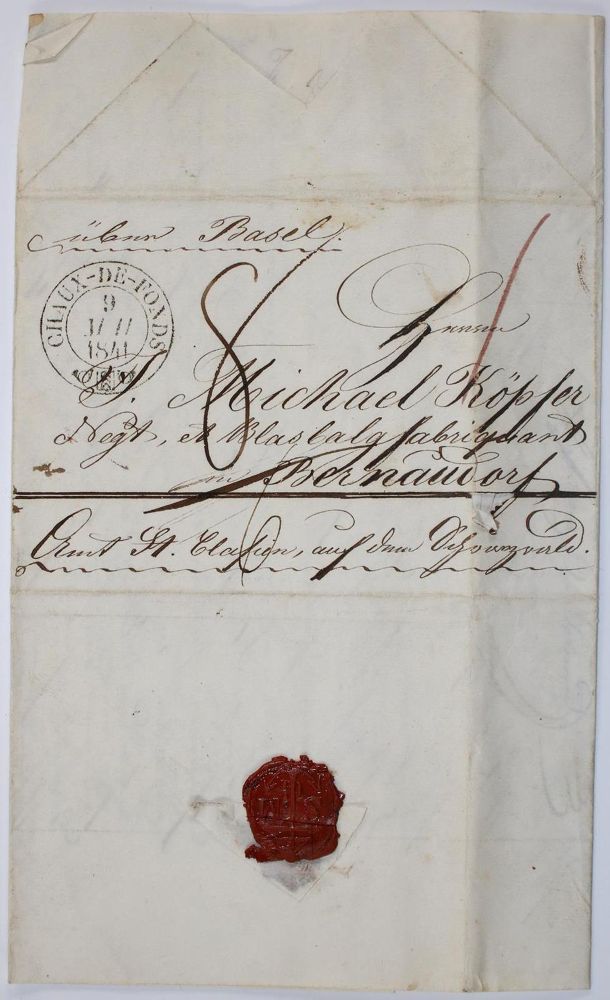 über Basel.
CHAUX-DE-FONDS
9
1841
8
Herrn
J. Michael Köpfer
Negt, et Blasbalgfabriquant
in Bernaudorf
Amt St. Blasien, auf dem Schwarzwald.